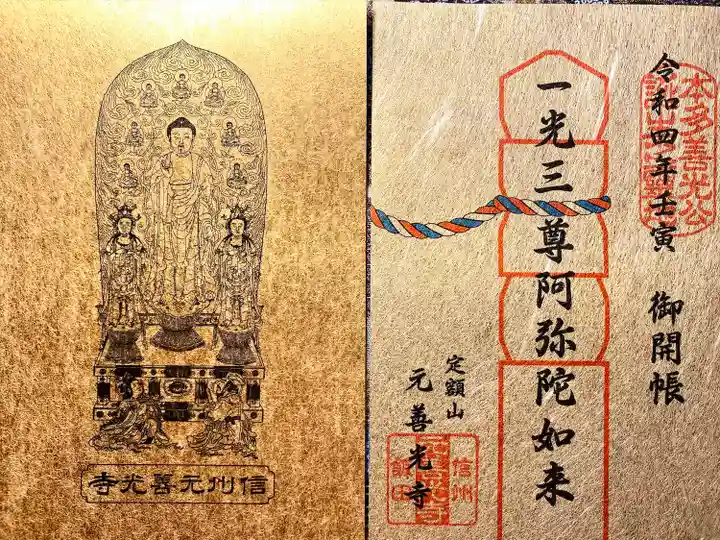 信州元善光寺
本多善光公
令和四年壬寅 御開帳
一光三尊阿弥陀如来
定額山
元善光寺
信州
元善光寺
飯田